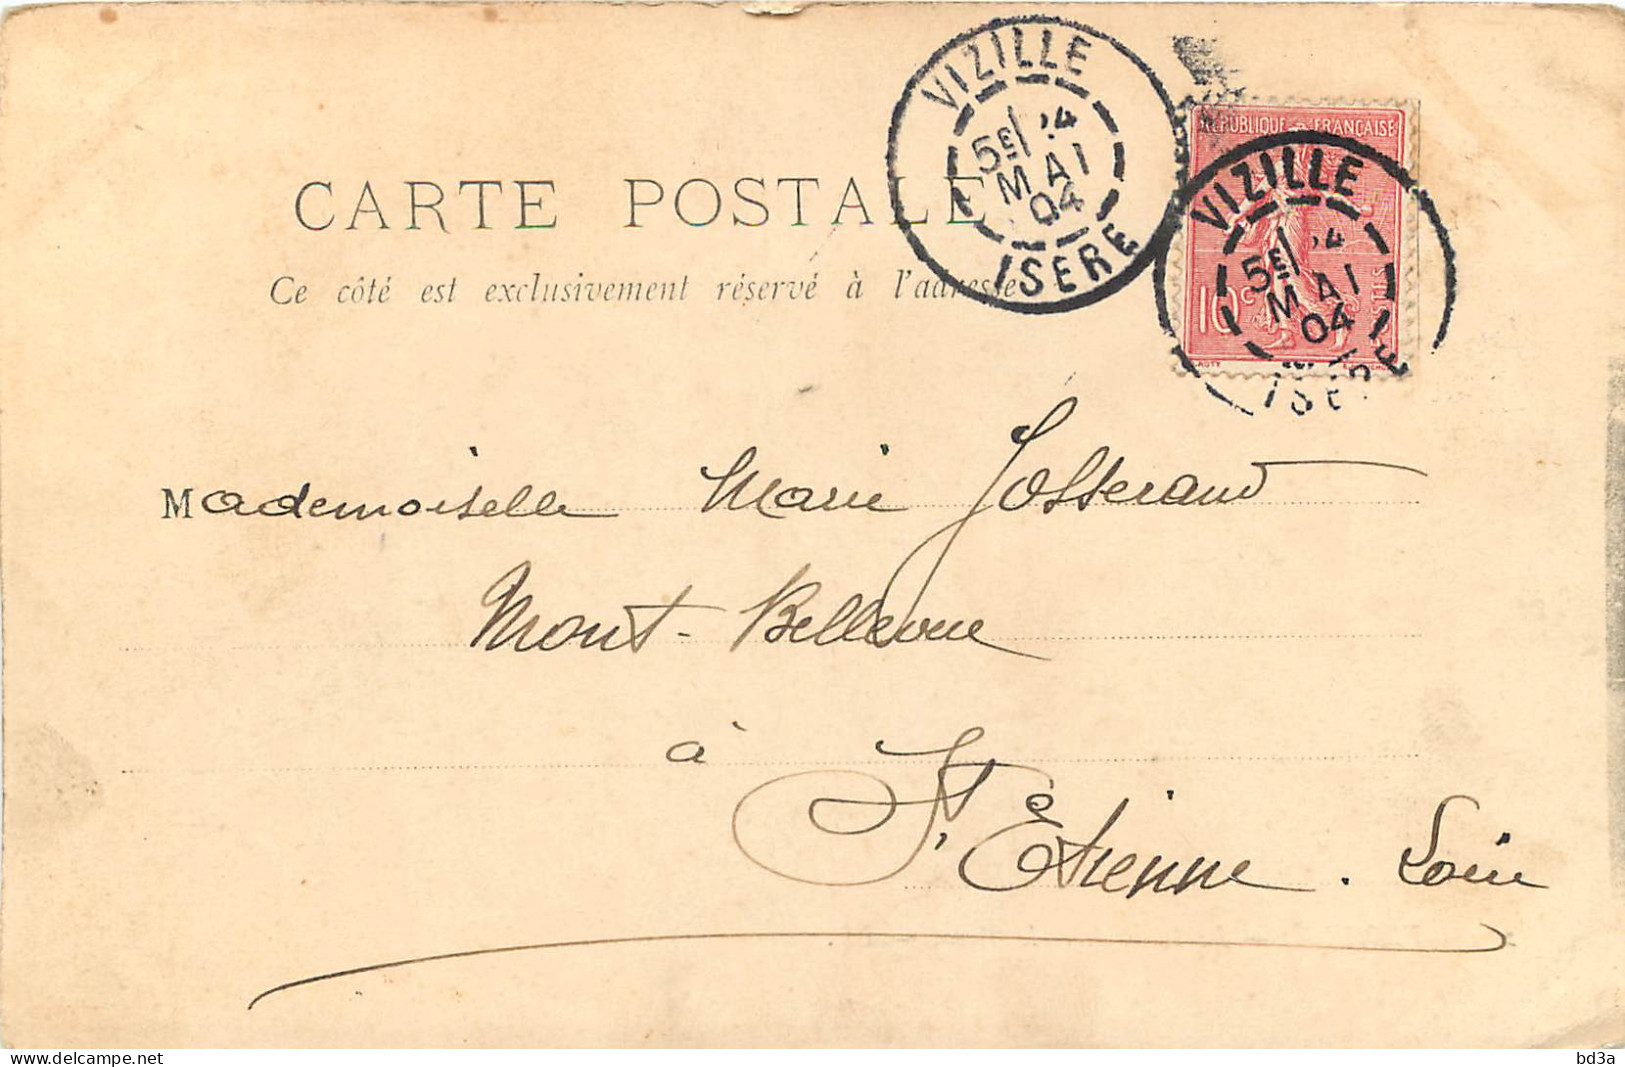 VIZILLE
5E 24
MAI
04
ISERE
REPUBLIQUE FRANÇAISE
POSTES
10c
VIZILLE
5E 24
MAI
04
ISERE
CARTE POSTALE
Ce côté est exclusivement réservé à l'adresse
Mademoiselle Marie Josserand
Mont-Bellevue
à
St Etienne. Loire
www.delcampe.net
bd3a